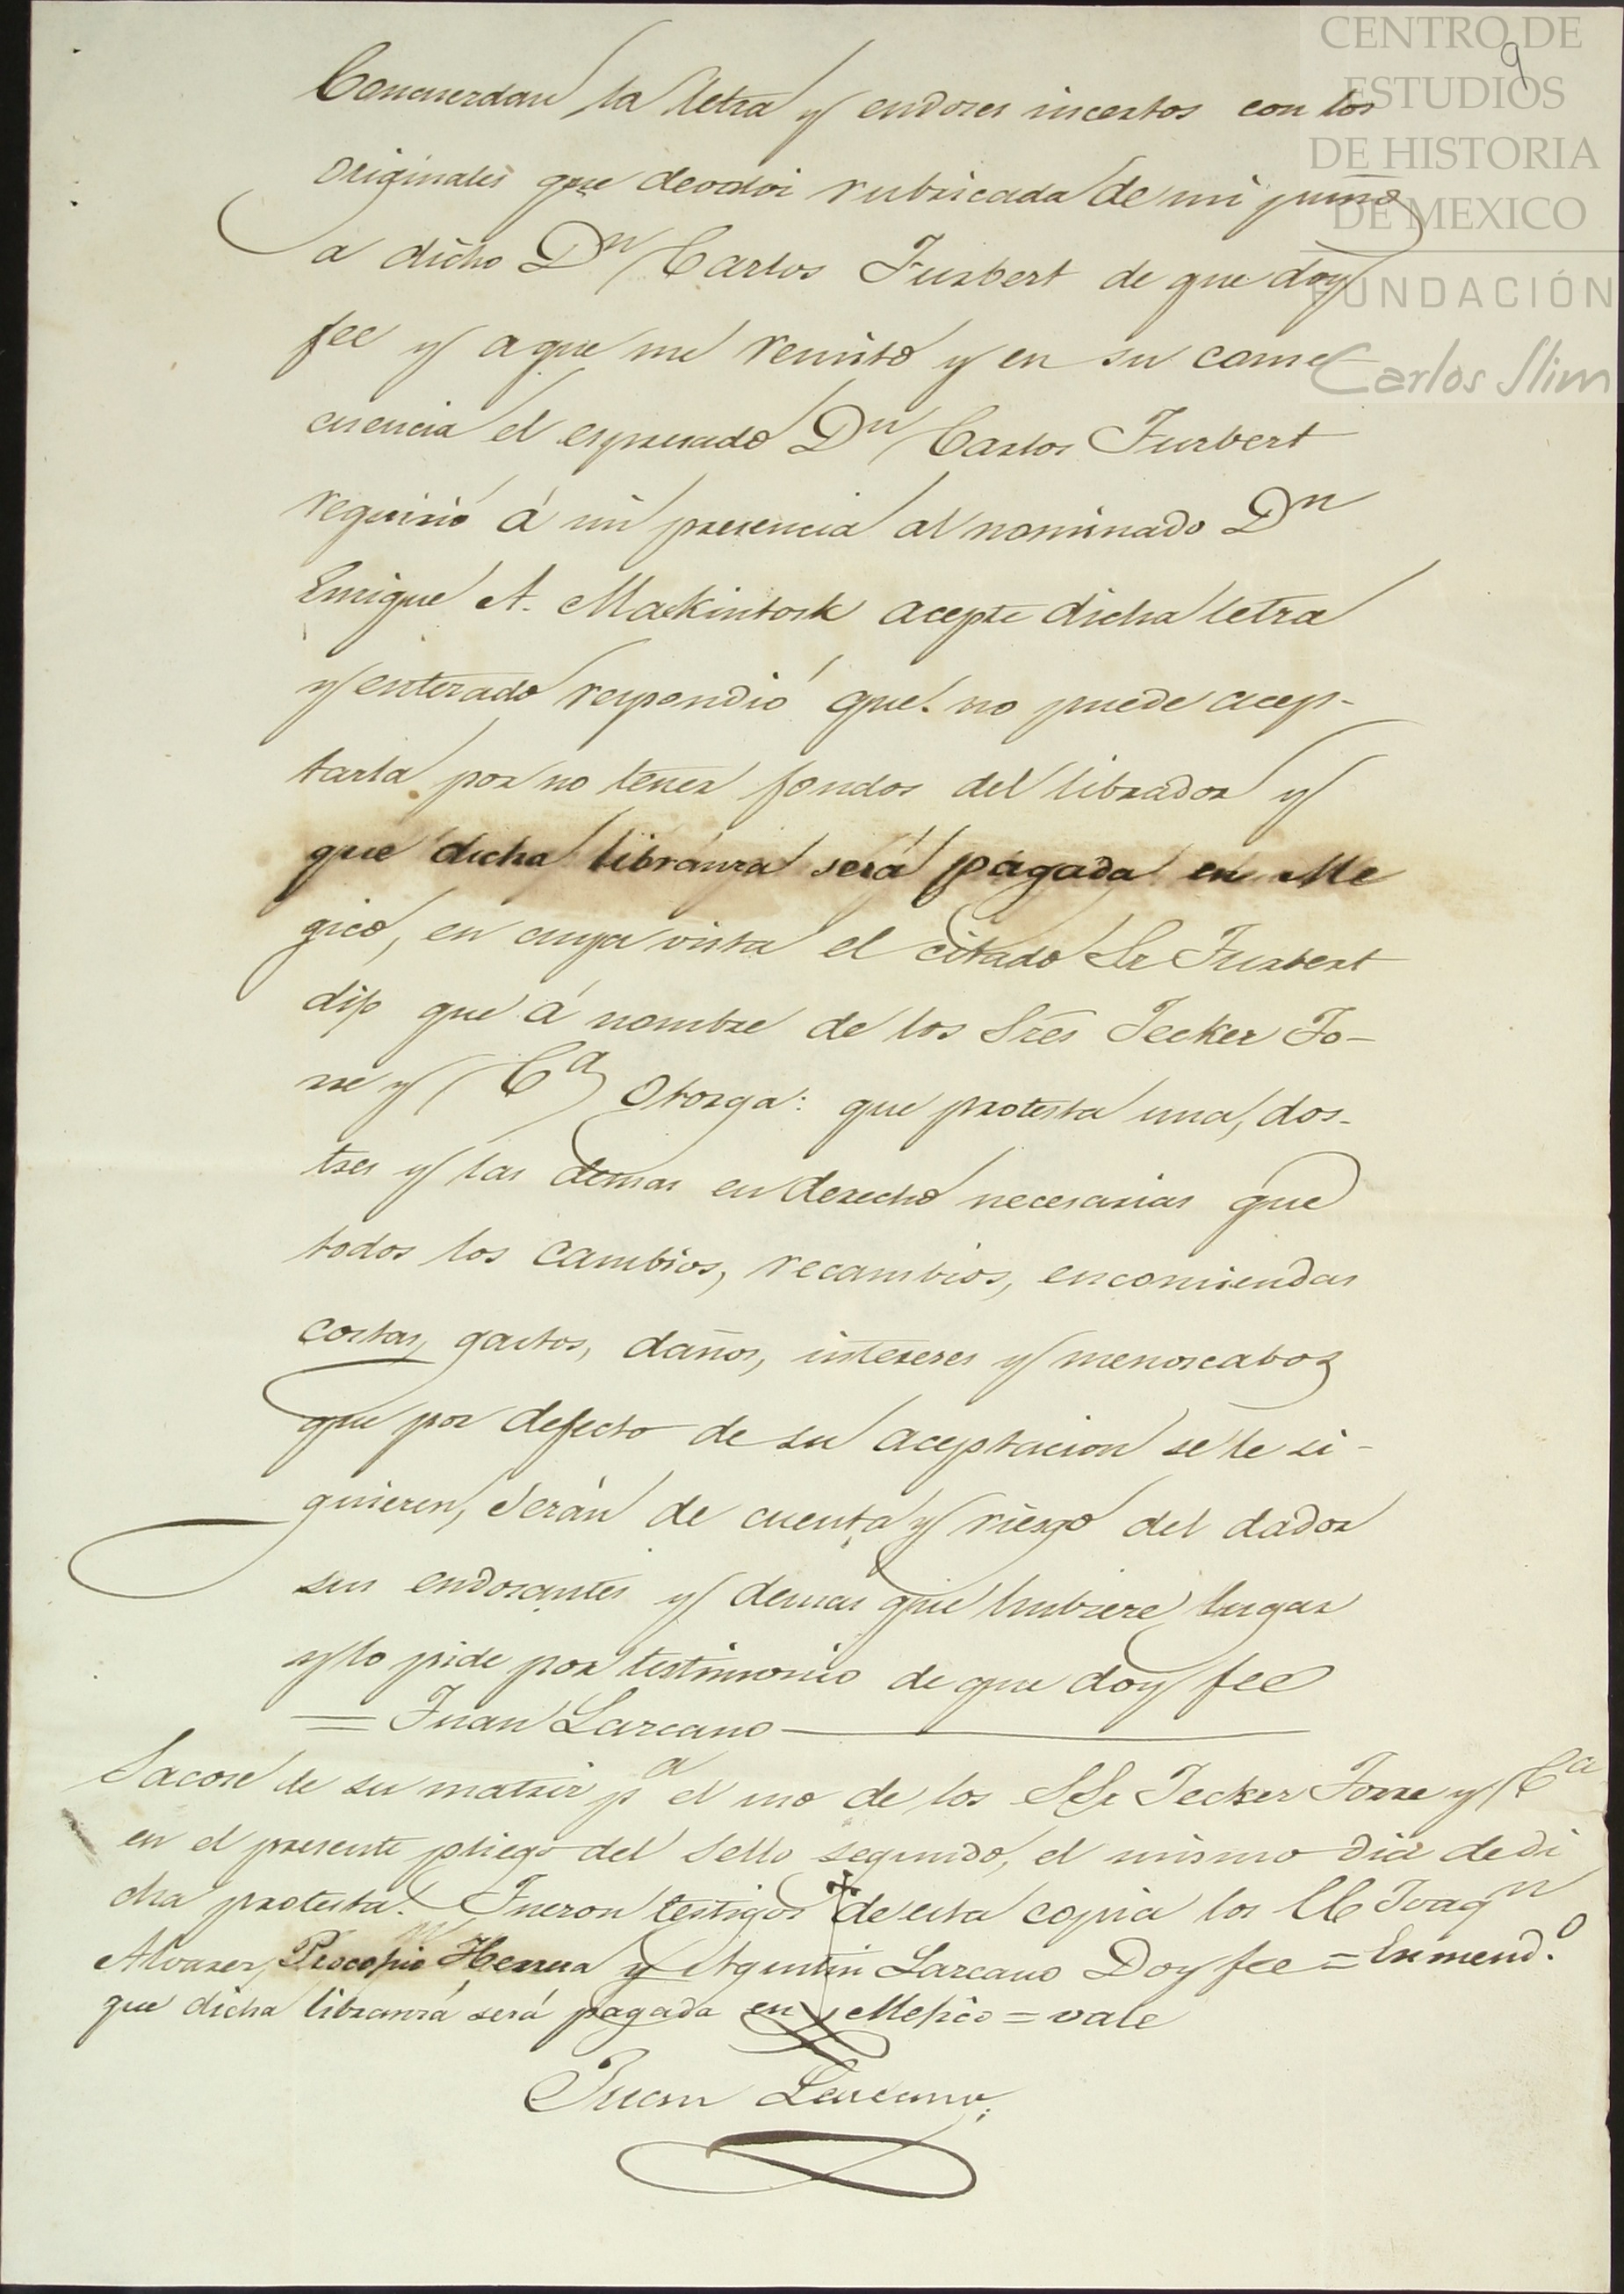 CENTRO DE
ESTUDIOS
DE HISTORIA
DE MEXICO
FUNDACIÓN
Carlos Slim
9
Concuerdan la letra y endoses incertos con los
originales que devolví rubricada de mi puño
a dicho Dn Carlos Furbert de que doy
fee y a que me remito y en su conse
cuencia el espresado Dn Carlos Furbert
requirió á mi presencia al nominado Dn
Enrique A. Mackintosh acepte dicha letra
y enterado respondió que no puede acep-
tarla por no tener fondos del librador y
que dicha libranza será pagada en Me
gico, en cuya vista el citado Sr Furbert
dijo que á nombre de los Sres Jecker To-
rre y Ca Otorga: que protesta una, dos-
tres y las demas en derecho necesarias que
todos los cambios, recambios, encomiendas
costas, gastos, daños, intereses y menoscabos
que por defecto de su aceptacion se le si-
guieren, serán de cuenta y riesgo del dador
sus endosantes y demas que hubiere lugar
y lo pide por testimonio de que doy fee
= Juan Lazcano
Sacose de su matriz pa el uso de los SSr Jecker Torre y Ca
en el presente pliego del sello segundo, el mismo dia de di
cha protesta. Fueron testigos de esta copia los CC Joaqn
Alvarez, Procopio Herrera y Agustin Lazcano Doy fee = Enmend.o
que dicha libranza será pagada en Mejico = vale
Juan Lazcano.